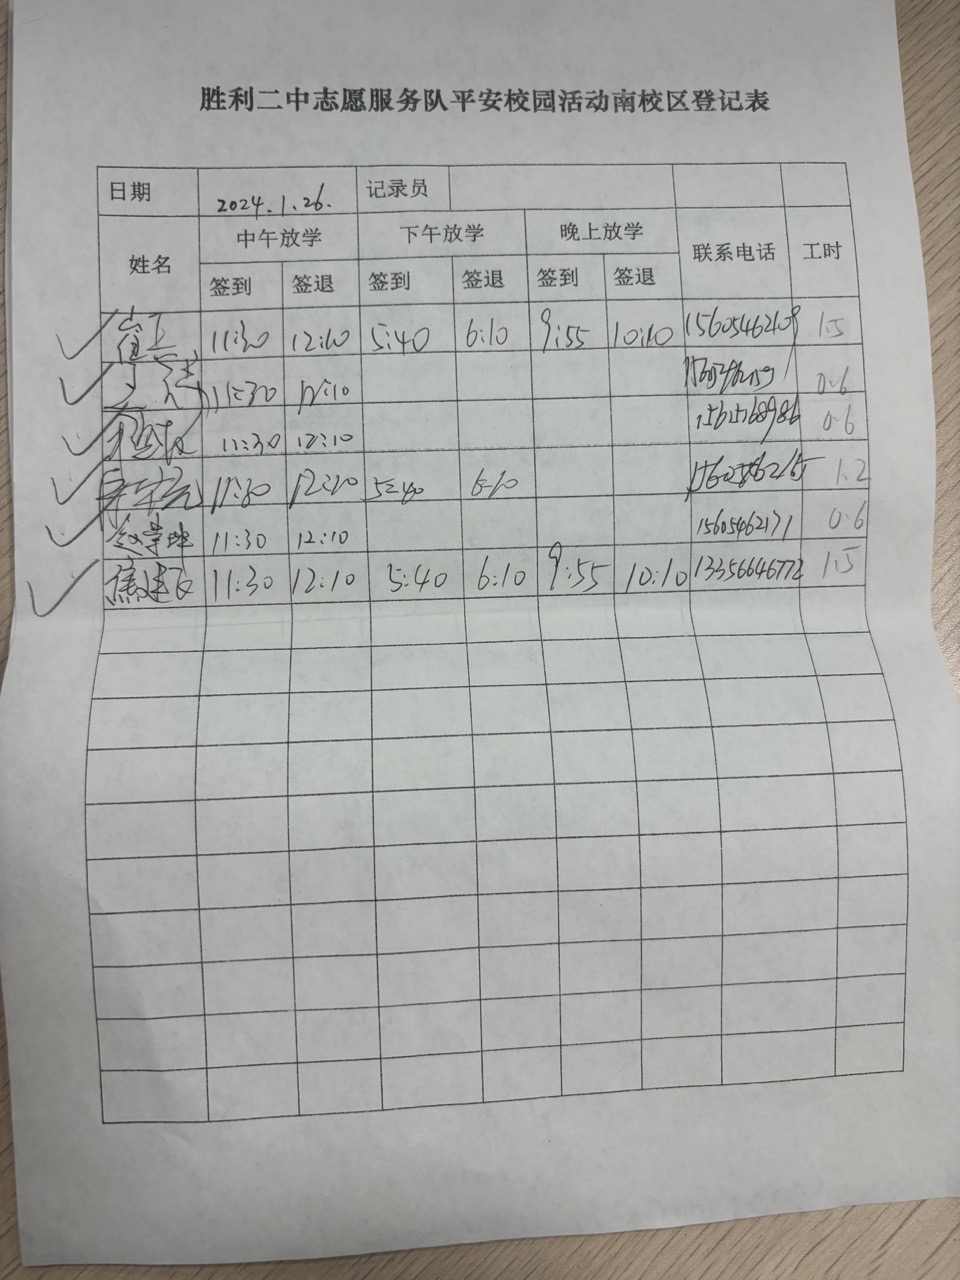 胜利二中志愿服务队平安校园活动南校区登记表
日期 2024.1.26. 记录员
姓名 中午放学 下午放学 晚上放学 联系电话 工时
签到 签退 签到 签退 签到 签退
11:30 12:10 5:40 6:10 9:55 10:10 1.5
11:30 12:10 0.6
11:30 12:10 0.6
11:30 12:10 5:40 6:10 1.2
11:30 12:10 15605462171 0.6
焦建飞 11:30 12:10 5:40 6:10 9:55 10:10 13356646772 1.5